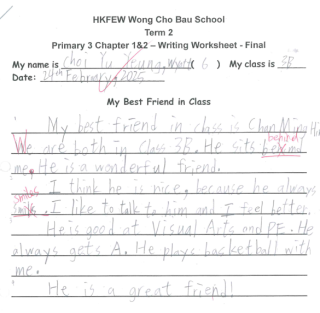 HKFEW Wong Cho Bau School
Term 2
Primary 3 Chapter 1&2 – Writing Worksheet - Final
My name is Choi Yu Yeung, Wyatt ( 6 ) My class is 3B
Date: 24th February, 2025
My Best Friend in Class
My best friend in class is Chan Ming Hi
behind
We are both in Class 3B. He sits
me. He is a wonderful friend.
I think he is nice, because he always
smiles
smile. I like to talk to him and I feel better.
He is good at Visual Arts and PE. He
always gets A. He plays basketball with
me.
He is a great friend!